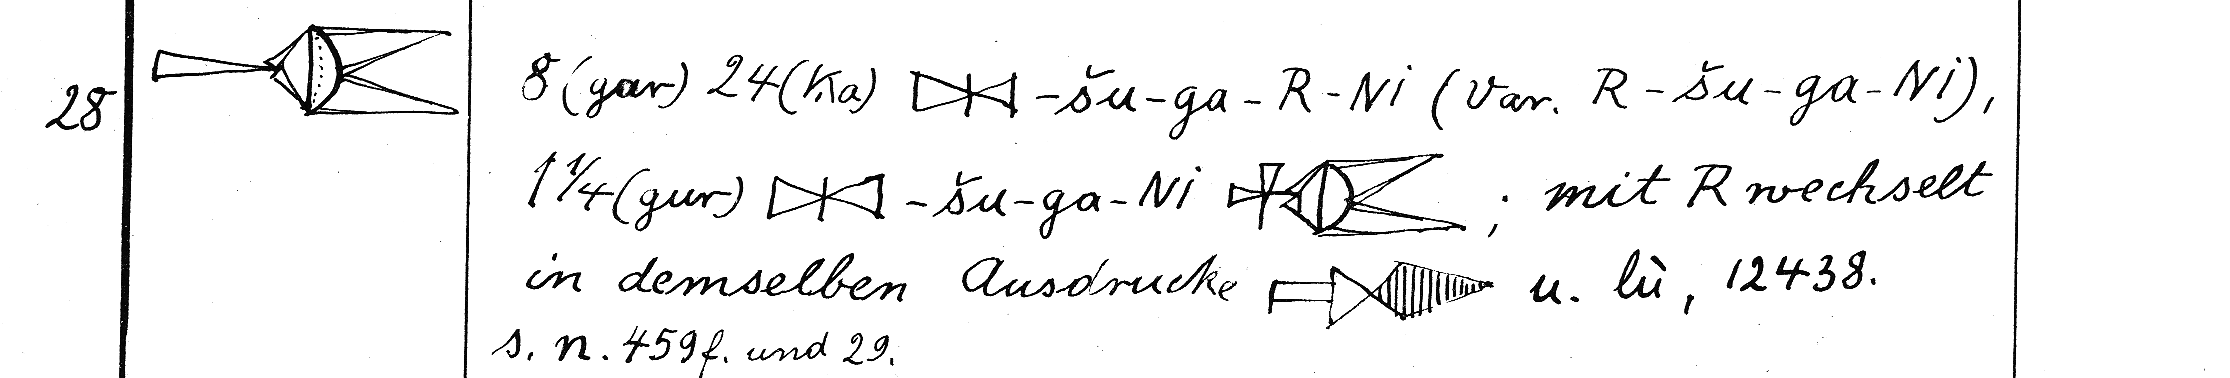 28
8(gar) 24(Ka) -šu-ga-R-Ni (Var. R-šu-ga-Ni),
1 1/4(gur) -šu-ga-Ni ; mit R wechselt
in demselben Ausdrucke u. lù, 12438.
s. n. 459f. und 29.